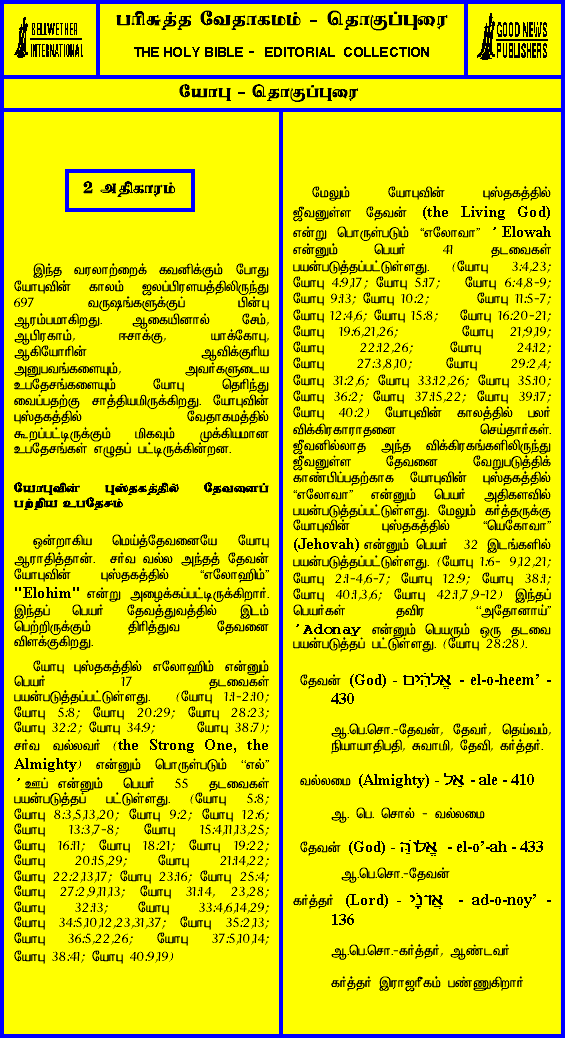 BELLWETHER
INTERNATIONAL
பரிசுத்த வேதாகமம் - தொகுப்புரை
THE HOLY BIBLE - EDITORIAL COLLECTION
GOOD NEWS
PUBLISHERS
யோபு - தொகுப்புரை
2 அதிகாரம்
இந்த வரலாற்றைக் கவனிக்கும் போது
யோபுவின் காலம் ஜலப்பிரளயத்திலிருந்து
697 வருஷங்களுக்குப் பின்பு
ஆரம்பமாகிறது. ஆகையினால் சேம்,
ஆபிரகாம், ஈசாக்கு, யாக்கோபு,
ஆகியோரின் ஆவிக்குரிய
அனுபவங்களையும், அவர்களுடைய
உபதேசங்களையும் யோபு தெரிந்து
வைப்பதற்கு சாத்தியமிருக்கிறது. யோபுவின்
புஸ்தகத்தில் வேதாகமத்தில்
கூறப்பட்டிருக்கும் மிகவும் முக்கியமான
உபதேசங்கள் எழுதப் பட்டிருக்கின்றன.
யோபுவின் புஸ்தகத்தில் தேவனைப்
பற்றிய உபதேசம்
ஒன்றாகிய மெய்த்தேவனையே யோபு
ஆராதித்தான். சர்வ வல்ல அந்தத் தேவன்
யோபுவின் புஸ்தகத்தில் “எலோஹிம்”
"Elohim" என்று அழைக்கப்பட்டிருக்கிறார்.
இந்தப் பெயர் தேவத்துவத்தில் இடம்
பெற்றிருக்கும் திரித்துவ தேவனை
விளக்குகிறது.
யோபு புஸ்தகத்தில் எலோஹிம் என்னும்
பெயர் 17 தடவைகள்
பயன்படுத்தப்பட்டுள்ளது. (யோபு 1:1-2:10;
யோபு 5:8; யோபு 20:29; யோபு 28:23;
யோபு 32:2; யோபு 34:9; யோபு 38:7);
சர்வ வல்லவர் (the Strong One, the
Almighty) என்னும் பொருள்படும் “எல்”
’ஊப் என்னும் பெயர் 55 தடவைகள்
பயன்படுத்தப் பட்டுள்ளது. (யோபு 5:8;
யோபு 8:3,5,13,20; யோபு 9:2; யோபு 12:6;
யோபு 13:3,7-8; யோபு 15:4,11,13,25;
யோபு 16:11; யோபு 18:21; யோபு 19:22;
யோபு 20:15,29; யோபு 21:14,22;
யோபு 22:2,13,17; யோபு 23:16; யோபு 25:4;
யோபு 27:2,9,11,13; யோபு 31:14, 23,28;
யோபு 32:13; யோபு 33:4,6,14,29;
யோபு 34:5,10,12,23,31,37; யோபு 35:2,13;
யோபு 36:5,22,26; யோபு 37:5,10,14;
யோபு 38:41; யோபு 40:9,19)
மேலும் யோபுவின் புஸ்தகத்தில்
ஜீவனுள்ள தேவன் (the Living God)
என்று பொருள்படும் “எலோவா” ’Elowah
என்னும் பெயர் 41 தடவைகள்
பயன்படுத்தப்பட்டுள்ளது. (யோபு 3:4,23;
யோபு 4:9,17; யோபு 5:17; யோபு 6:4,8-9;
யோபு 9:13; யோபு 10:2; யோபு 11:5-7;
யோபு 12:4,6; யோபு 15:8; யோபு 16:20-21;
யோபு 19:6,21,26; யோபு 21:9,19;
யோபு 22:12,26; யோபு 24:12;
யோபு 27:3,8,10; யோபு 29:2,4;
யோபு 31:2,6; யோபு 33:12,26; யோபு 35:10;
யோபு 36:2; யோபு 37:15,22; யோபு 39:17;
யோபு 40:2) யோபுவின் காலத்தில் பலர்
விக்கிரகாராதனை செய்தார்கள்.
ஜீவனில்லாத அந்த விக்கிரகங்களிலிருந்து
ஜீவனுள்ள தேவனை வேறுபடுத்திக்
காண்பிப்பதற்காக யோபுவின் புஸ்தகத்தில்
“எலோவா” என்னும் பெயர் அதிகளவில்
பயன்படுத்தப்பட்டுள்ளது. மேலும் கர்த்தருக்கு
யோபுவின் புஸ்தகத்தில் “யெகோவா”
(Jehovah) என்னும் பெயர் 32 இடங்களில்
பயன்படுத்தப்பட்டுள்ளது. (யோபு 1:6- 9,12,21;
யோபு 2:1-4,6-7; யோபு 12:9; யோபு 38:1;
யோபு 40:1,3,6; யோபு 42:1,7,9-12) இந்தப்
பெயர்கள் தவிர “அதோனாய்”
’Adonay என்னும் பெயரும் ஒரு தடவை
பயன்படுத்தப் பட்டுள்ளது. (யோபு 28:28).
தேவன் (God) - אֱלֹהִים - el-o-heem’ -
430
ஆ.பெ.சொ.-தேவன், தேவர், தெய்வம்,
நியாயாதிபதி, சுவாமி, தேவி, கர்த்தர்.
வல்லமை (Almighty) - אֵל - ale - 410
ஆ. பெ. சொல் - வல்லமை
தேவன் (God) - אֱלוֹהַּ - el-o’-ah - 433
ஆ.பெ.சொ.-தேவன்
கர்த்தர் (Lord) - אֲדֹנָי - ad-o-noy’ -
136
ஆ.பெ.சொ.-கர்த்தர், ஆண்டவர்
கர்த்தர் இராஜரீகம் பண்ணுகிறார்